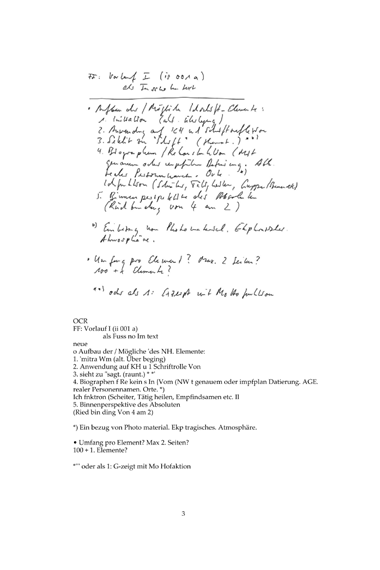 FF: Vorlauf I (ii 001 a)
als Fuss no Im text
• Aufbau der / Mögliche Elemente:
1. Initation (alt.
2. Anwendung auf ICH und Schriftreflexion
3.
4. Biographem / Rekonstruktion
genauem oder Datierung.
realer Personennamen. Orte. *)
5. Binnenperspektive des Absoluten
(Rückbindung von 4 an 2)
*) Einbezug von Photomaterial.
Atmosphäre.
• Umfang pro Element? Max. 2 Seiten?
100 + 1 Elemente?
**) oder als 1: Exzerpt mit Mottofunktion
OCR
FF: Vorlauf I (ii 001 a)
als Fuss no Im text
neue
o Aufbau der / Mögliche 'des NH. Elemente:
1. 'mitra Wm (alt. Über beging)
2. Anwendung auf KH u 1 Schriftrolle Von
3. sieht zu "sagt. (raunt.) * *'
4. Biographen f Re kein s In (Vom (NW t genauem oder impfplan Datierung. AGE.
realer Personennamen. Orte. *)
Ich fnktron (Scheiter, Tätig heilen, Empfindsamen etc. II
5. Binnenperspektive des Absoluten
(Ried bin ding Von 4 am 2)
*) Ein bezug von Photo material. Ekp tragisches. Atmosphäre.
• Umfang pro Element? Max 2. Seiten?
100 + 1. Elemente?
*"" oder als 1: G-zeigt mit Mo Hofaktion
3